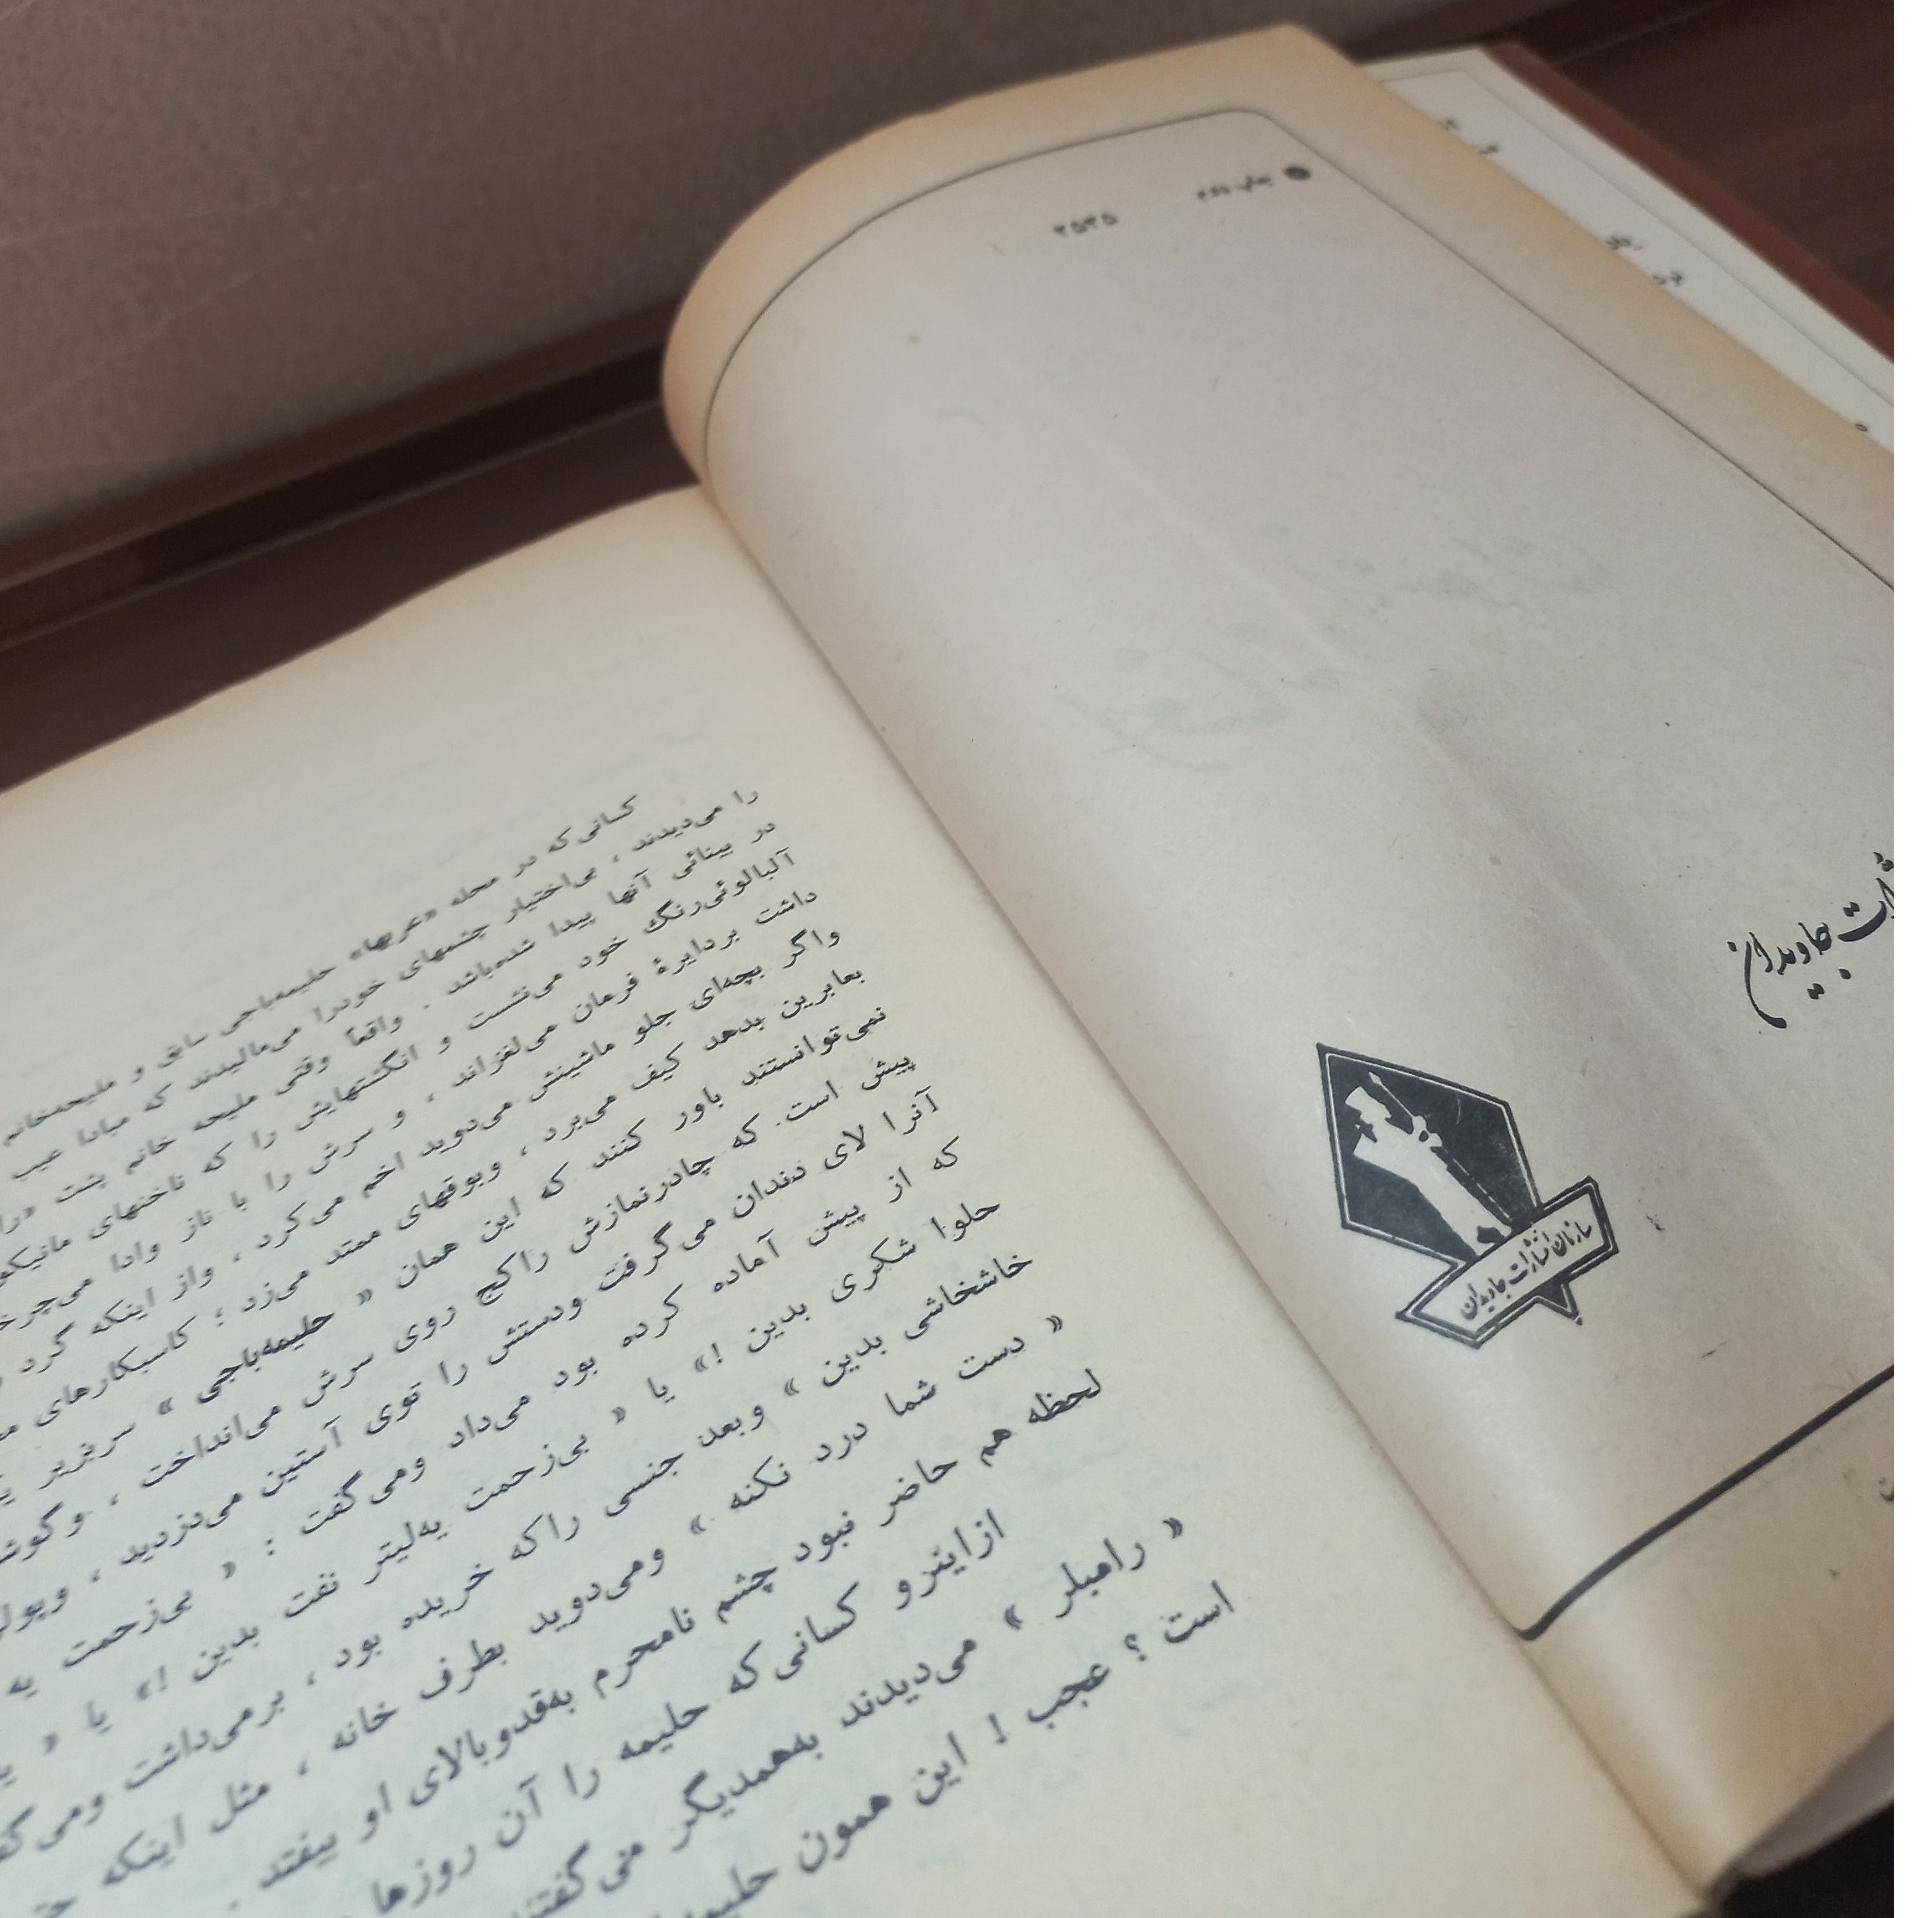 چاپ دوم
۲۵۳۵
جاویدان
سازمان انتشارات جاویدان
کسانی‌که در محله «عربها» حلیمه‌باجی سابق و ملیحه‌خانم
را می‌دیدند ، بی‌اختیار چشمهای خودرا می‌مالیدند که مبادا عیب
در بینائی آنها پیدا شده‌باشد . واقعاً وقتی ملیحه خانم پشت
آلبالوئی‌رنگ خود می‌نشست و انگشتهایش را که ناخنهای
داشت بردایرهٔ فرمان می‌لغزاند ، و سرش را با ناز وادا
واگر بچه‌ای جلو ماشینش می‌دوید اخم می‌کرد ، واز اینکه گرد
بعابرین بدهد کیف می‌برد ، وبوقهای ممتد می‌زد ؛ کاسبکارهای
نمی‌توانستند باور کنند که این همان « حلیمه‌باجی » سربزیر
پیش است. که چادرنمازش راکج روی سرش می‌انداخت ،
آنرا لای دندان می‌گرفت ودستش را توی آستین می‌دزدید ،
که از پیش آماده کرده بود می‌داد ومی‌گفت : « بی‌زحمت یه
حلوا شکری بدین !» یا « بی‌زحمت یه‌لیتر نفت بدین !» یا «
خاشخاشی بدین » وبعد جنسی راکه خریده بود ، برمی‌داشت
« دست شما درد نکنه » ومی‌دوید بطرف خانه ، مثل اینکه
لحظه هم حاضر نبود چشم نامحرم به‌قدوبالای او بیفتد .
ازاینرو کسانی‌که حلیمه را آن روزها
« رامبلر » می‌دیدند به‌همدیگر می‌گفتند
است ؟ عجب ! این همون